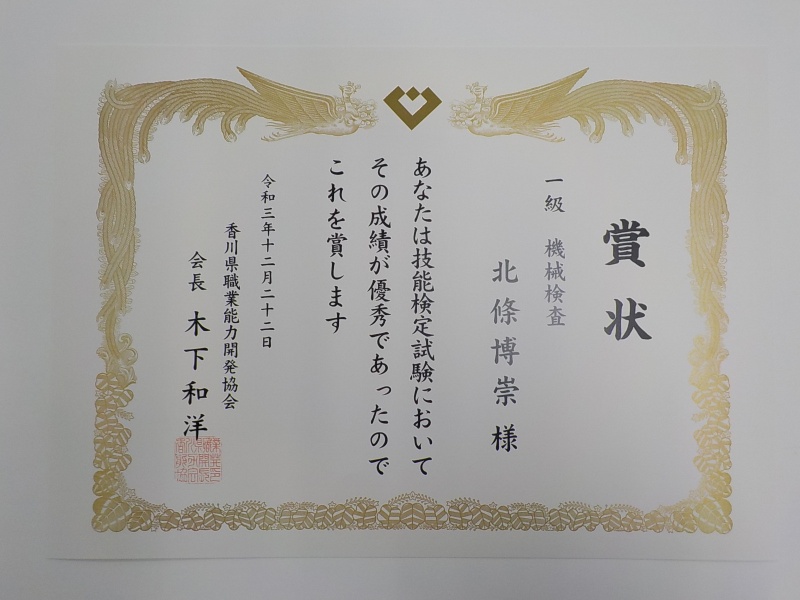 賞状
一級 機械検査
北條博崇 様
あなたは技能検定試験において
その成績が優秀であったので
これを賞します
令和三年十二月二十二日
香川県職業能力開発協会
会長 木下和洋